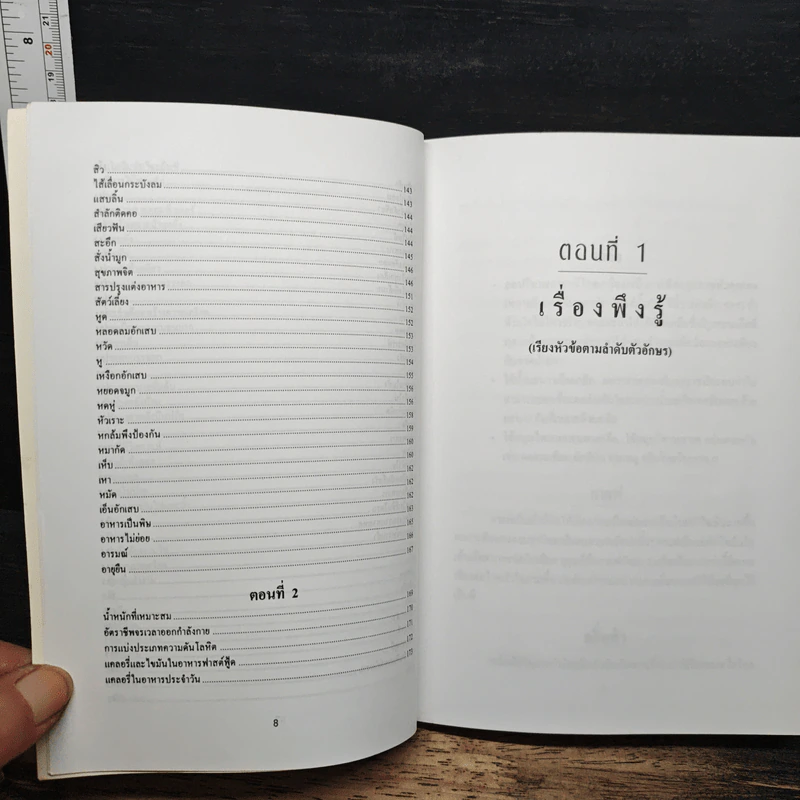 สิว 143
ไส้เลื่อนกระบังลม 143
แสบลิ้น 144
สำลักติดคอ 144
เสียวฟัน 144
สะอึก 145
สั่งน้ำมูก 146
สุขภาพจิต 146
สารปรุงแต่งอาหาร 151
สัตว์เลี้ยง 152
หูด 152
หลอดลมอักเสบ 153
หวัด 153
หู 154
เหงือกอักเสบ 155
หยอดจมูก 156
หดหู่ 156
หัวเราะ 158
หกล้มพึงป้องกัน 159
หมากัด 160
เห็บ 160
เหา 162
หมัด 162
เอ็นอักเสบ 162
อาหารเป็นพิษ 163
อาหารไม่ย่อย 165
อารมณ์ 166
อายุยืน 167
ตอนที่ 2
น้ำหนักที่เหมาะสม 169
อัตราชีพจรเวลาออกกำลังกาย 170
การแบ่งประเภทความดันโลหิต 171
แคลอรี่และไขมันในอาหารฟาสต์ฟู้ด 172
แคลอรี่ในอาหารประจำวัน 173
8
ตอนที่ 1
เรื่องพึงรู้
(เรียงหัวข้อตามลำดับตัวอักษร)
8
21
20
19
18